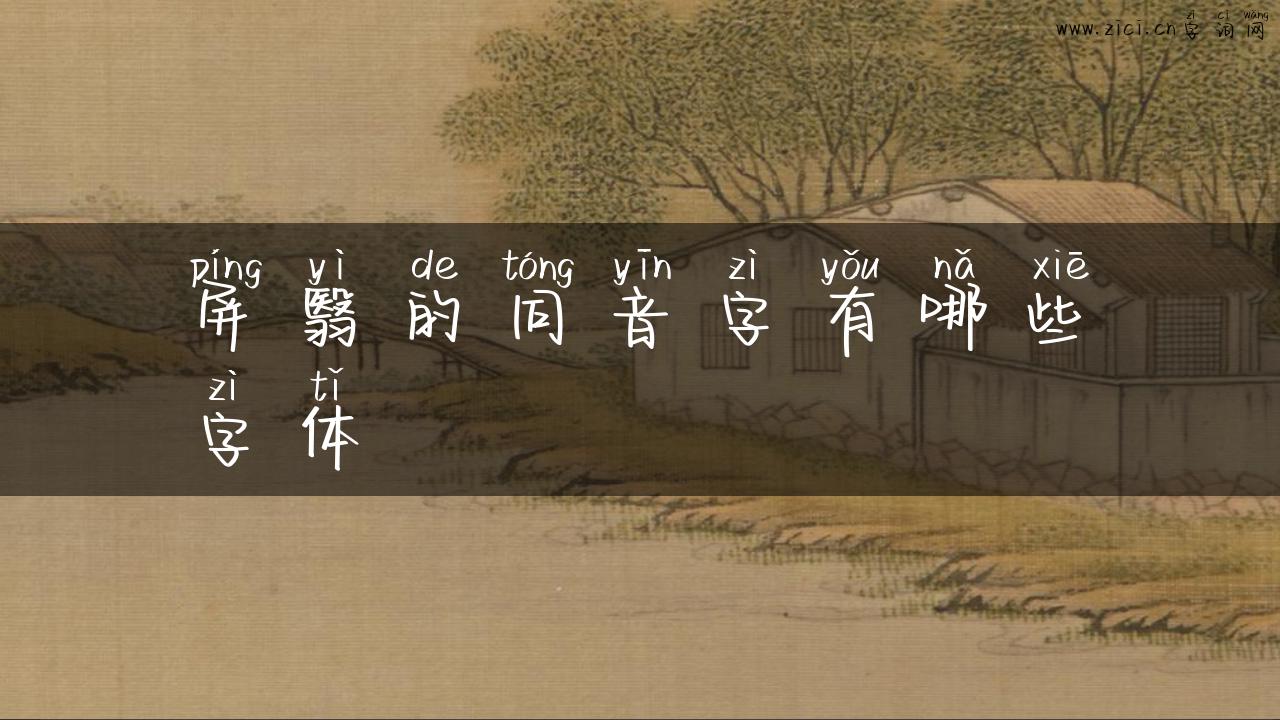 www.zici.cn字词网
zì cí wǎng
píng yì de tóng yīn zì yǒu nǎ xiē
屏翳的同音字有哪些
zì tǐ
字体